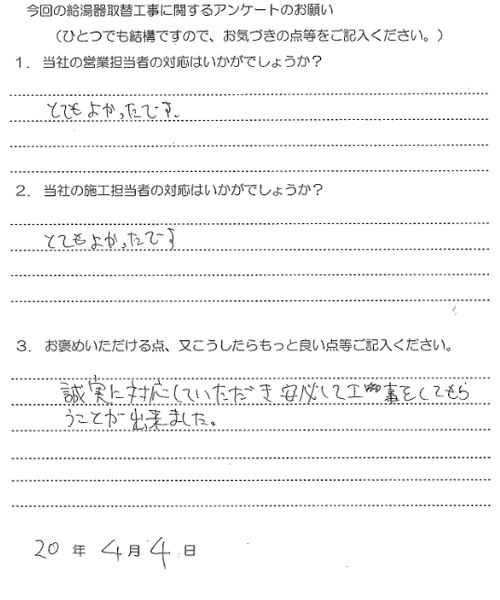 今回の給湯器取替工事に関するアンケートのお願い
（ひとつでも結構ですので、お気づきの点等をご記入ください。）
１．当社の営業担当者の対応はいかがでしょうか？
とてもよかったです。
２．当社の施工担当者の対応はいかがでしょうか？
とてもよかったです
３．お褒めいただける点、又こうしたらもっと良い点等ご記入ください。
誠実に対応していただき安心して工事をしてもら
うことが出来ました。
20 年 4月 4 日